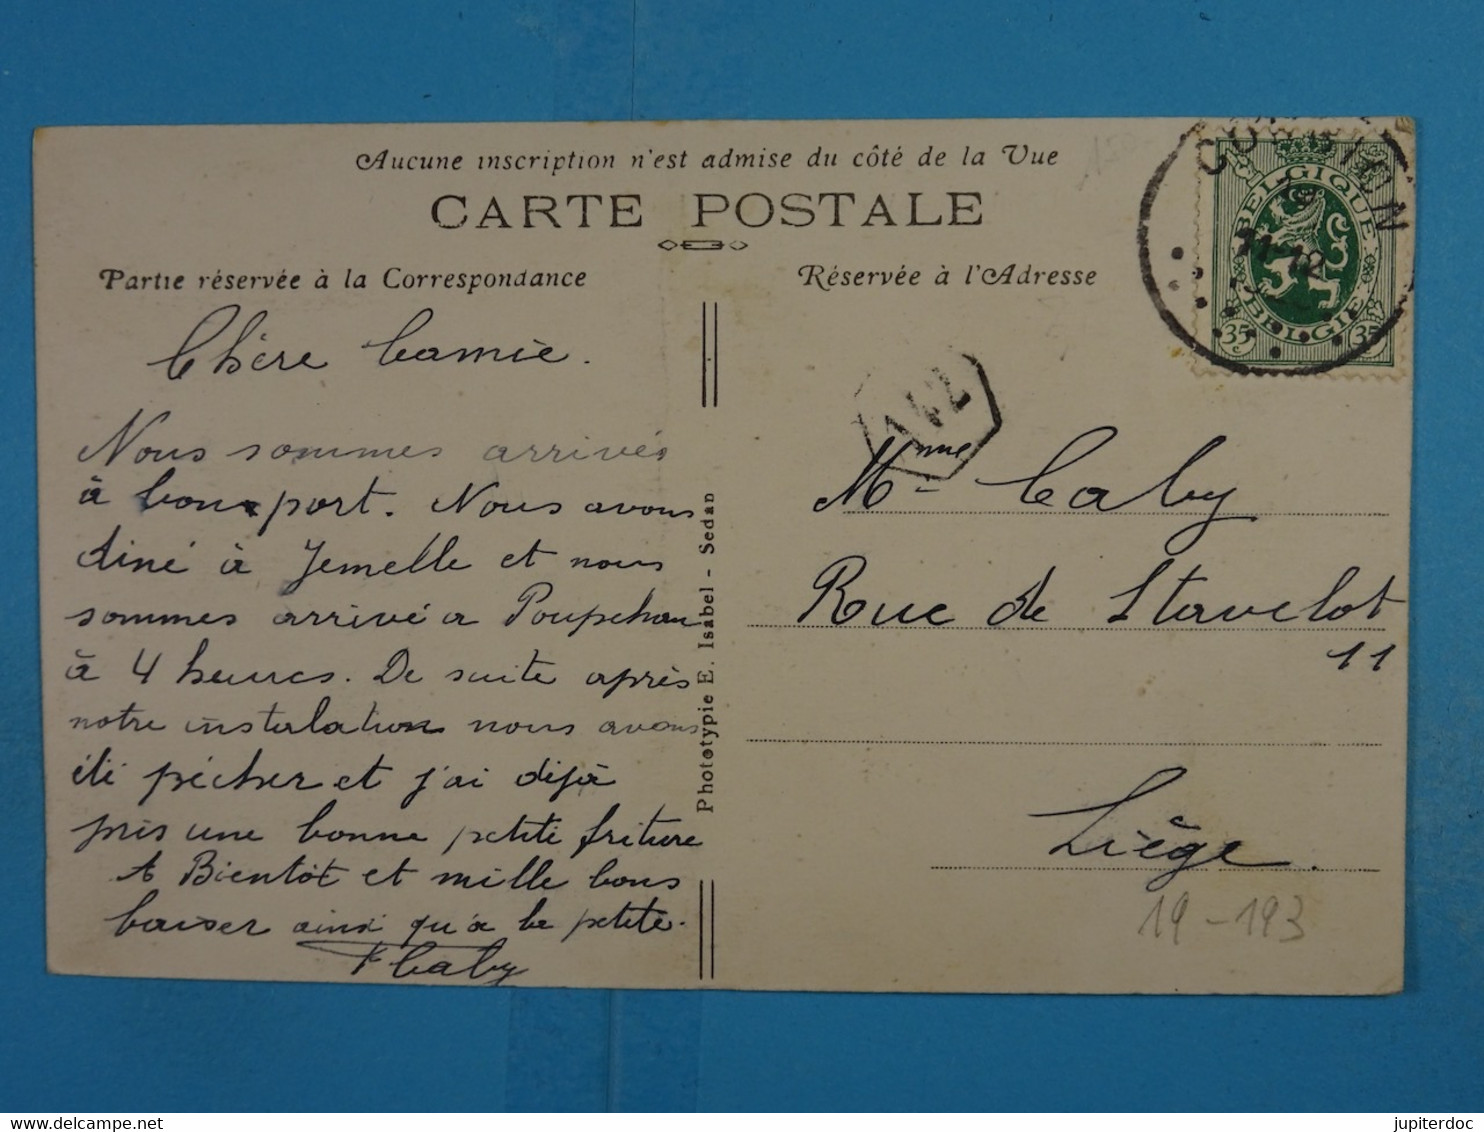 Aucune inscription n'est admise du côté de la Vue
CARTE POSTALE
Partie réservée à la Correspondance
Réservée à l'Adresse
Chère Camie.
Nous sommes arrivés
à bon port. Nous avons
diné à Jemelle et nous
sommes arrivé a Poupehan
à 4 heures. De suite après
notre instalation nous avons
été pécher et j'ai déjà
pris une bonne petite friture
A Bientôt et mille bons
baiser ainsi qu'a la petite.
FCaby
Phototypie E. Isabel - Sedan
BELGIQUE
BELGIE
35 c
35 c
11-12
142
Mme Caby
Rue de Stavelot
11
Liège.
19-193
jupiterdoc
www.delcampe.net